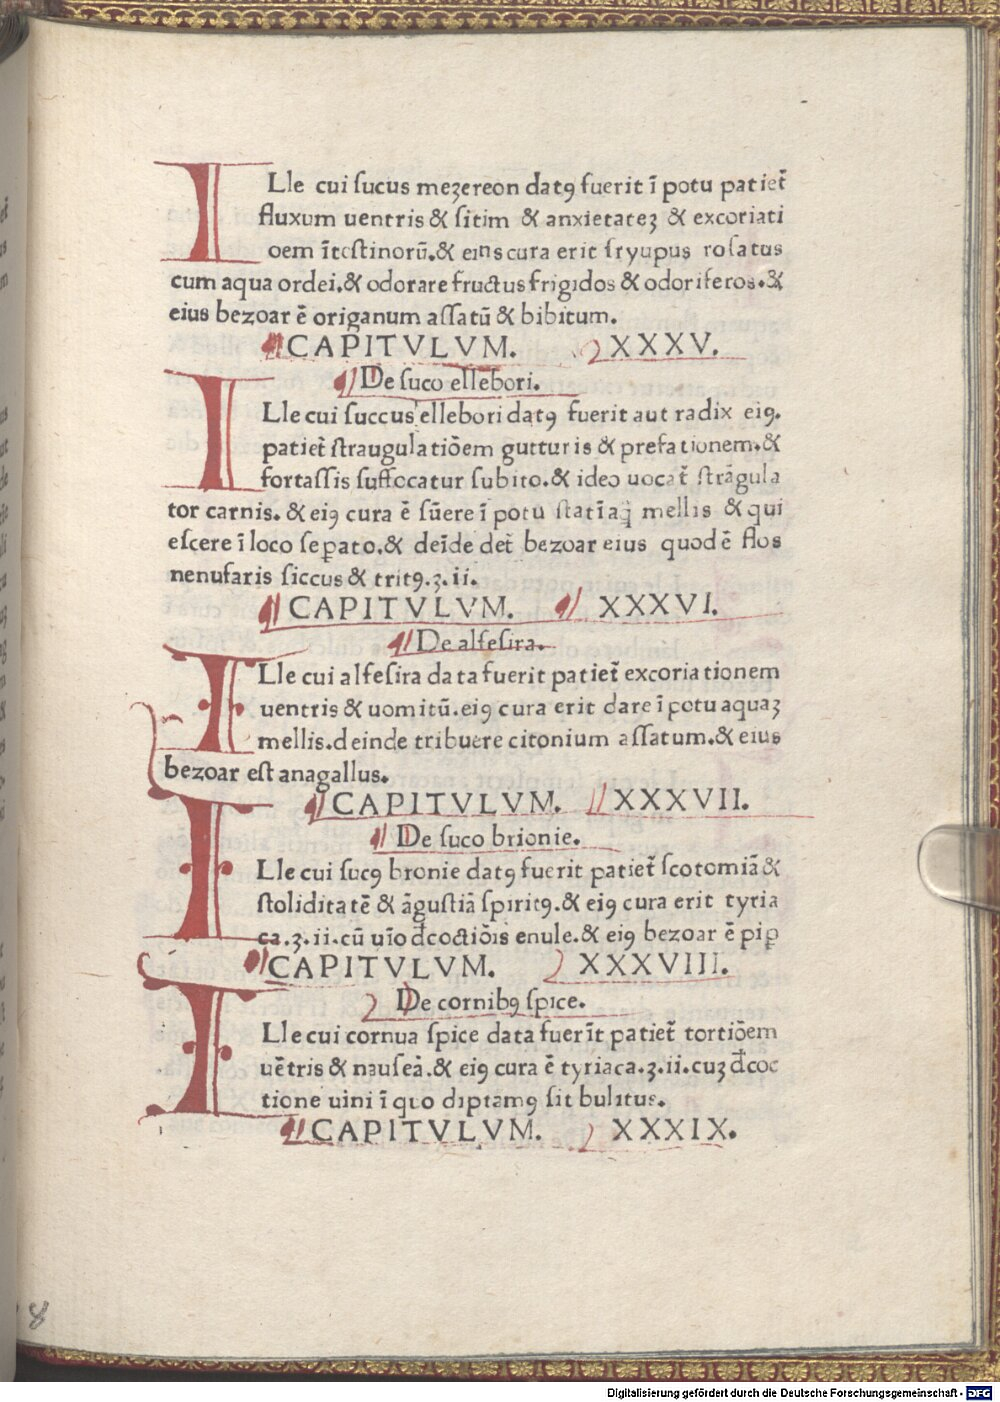 ILle cui sucus meʒereon datꝯ fuerit ī potu patiet̄
fluxum uentris & sitim & anxietateʒ & excoriati
oem ītestinorū.& eius cura erit syrupus rosatus
cum aqua ordei.& odorare fructus frigidos & odoriferos.&
eius bezoar ē origanum assatū & bibitum.
CAPITVLVM. XXXV.
De suco ellebori.
ILle cui succus ellebori datꝯ fuerit aut radix eiꝯ.
patiet̄ straugulatiōem gutturis & prefationem.&
fortassis suffocatur subito.& ideo uocat̄ strāgula
tor carnis. & eiꝯ cura ē sūere ī potu statī aq̄ mellis & qui
escere ī loco seꝑato.& deīde det̄ bezoar eius quod ē flos
nenufaris siccus & tritꝯ.ʒ.ii.
CAPITVLVM. XXXVI.
De alfesira.
ILle cui alfesira data fuerit patiet̄ excoriationem
uentris & uomitū.eiꝯ cura erit dare ī potu aquaʒ
mellis.deinde tribuere citonium assatum.& eius
bezoar est anagallus.
CAPITVLVM. XXXVII.
De suco brionie.
ILle cui sucꝯ bronie datꝯ fuerit patiet̄ scotomiā &
stoliditatē & āgustiā spiritꝯ.& eiꝯ cura erit tyria
ca.ʒ.ii.cū uīo d̄coctiōis enule.& eiꝯ bezoar ē piꝑ
CAPITVLVM. XXXVIII.
De cornibꝯ spice.
ILle cui cornua spice data fuerīt patiet̄ tortiōem
uētris & nauseā.& eiꝯ cura ē tyriaca.ʒ.ii.cuʒ d̄coc
tione uini ī quo diptamꝯ sit bulitus.
CAPITVLVM. XXXIX.
8
Digitalisierung gefördert durch die Deutsche Forschungsgemeinschaft - DFG